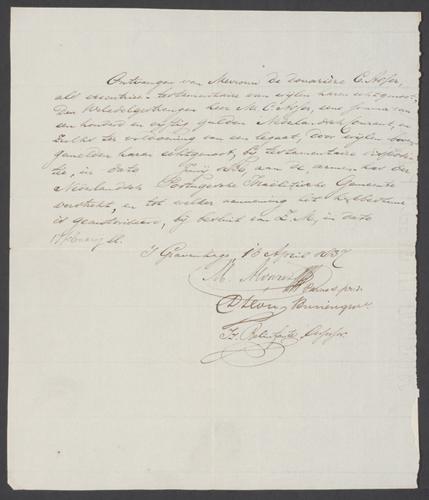 Ontvangen van Mevrouw de douarière C. Asser,
als executrice-testamentaire van wijlen haren echtgenoot,
Den Weledelgestrengen heer M. C. Asser, eene somma van
een honderd en vijftig gulden Nederlandsch Courant, en
Zulks ter voldoening van een legaat, door wijlen
gemelden haren echtgenoot, bij testamentaire dispositie,
in dato Junij aan de armen kas der
Nederlandsch Portugesche Israelitische Gemeente
verstrekt, en tot welker aanneming
is geautoriseerd, bij besluit van Z. M., in dato
17 February ll.
's Gravenhage, 16 April 1837
M.
Parnas
Belinfante